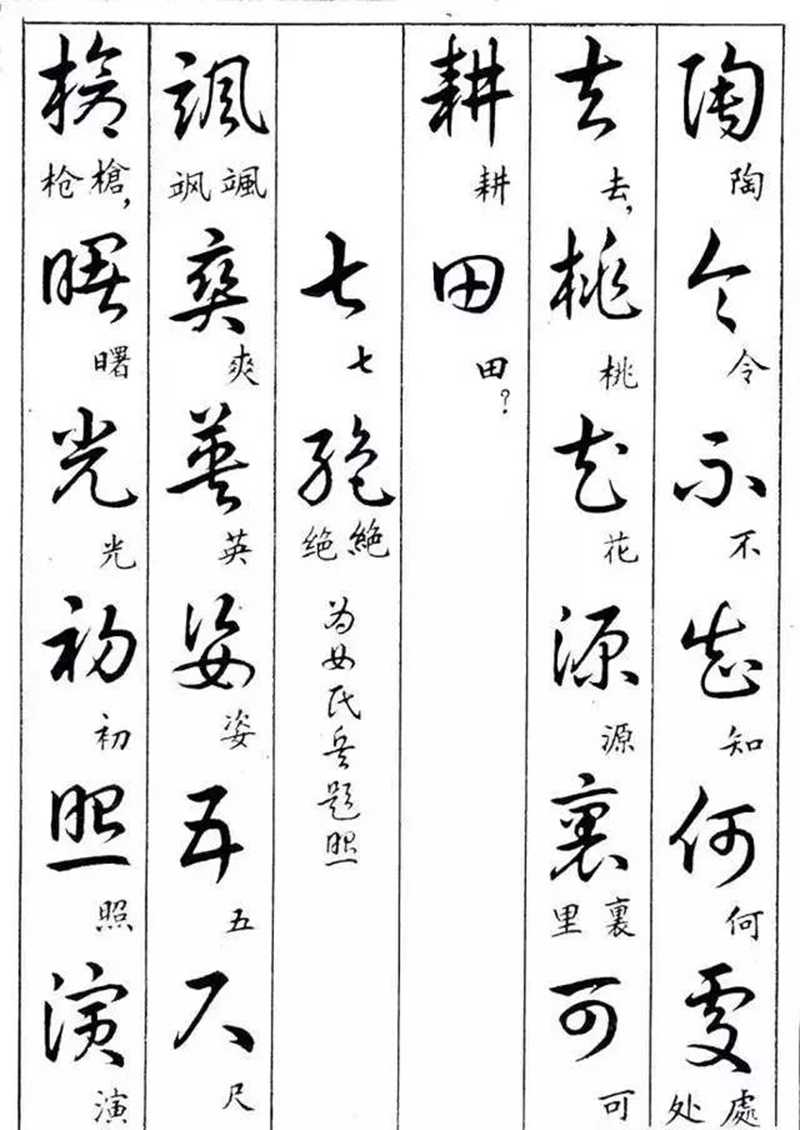 陶令不知何處
陶令不知何處处
去桃花源裏可
去,桃花源裏里可
耕田
耕田?
七絕
七絕绝
为女民兵題照
颯爽英姿五尺
颯飒爽英姿五尺
槍曙光初照演
槍,枪曙光初照演